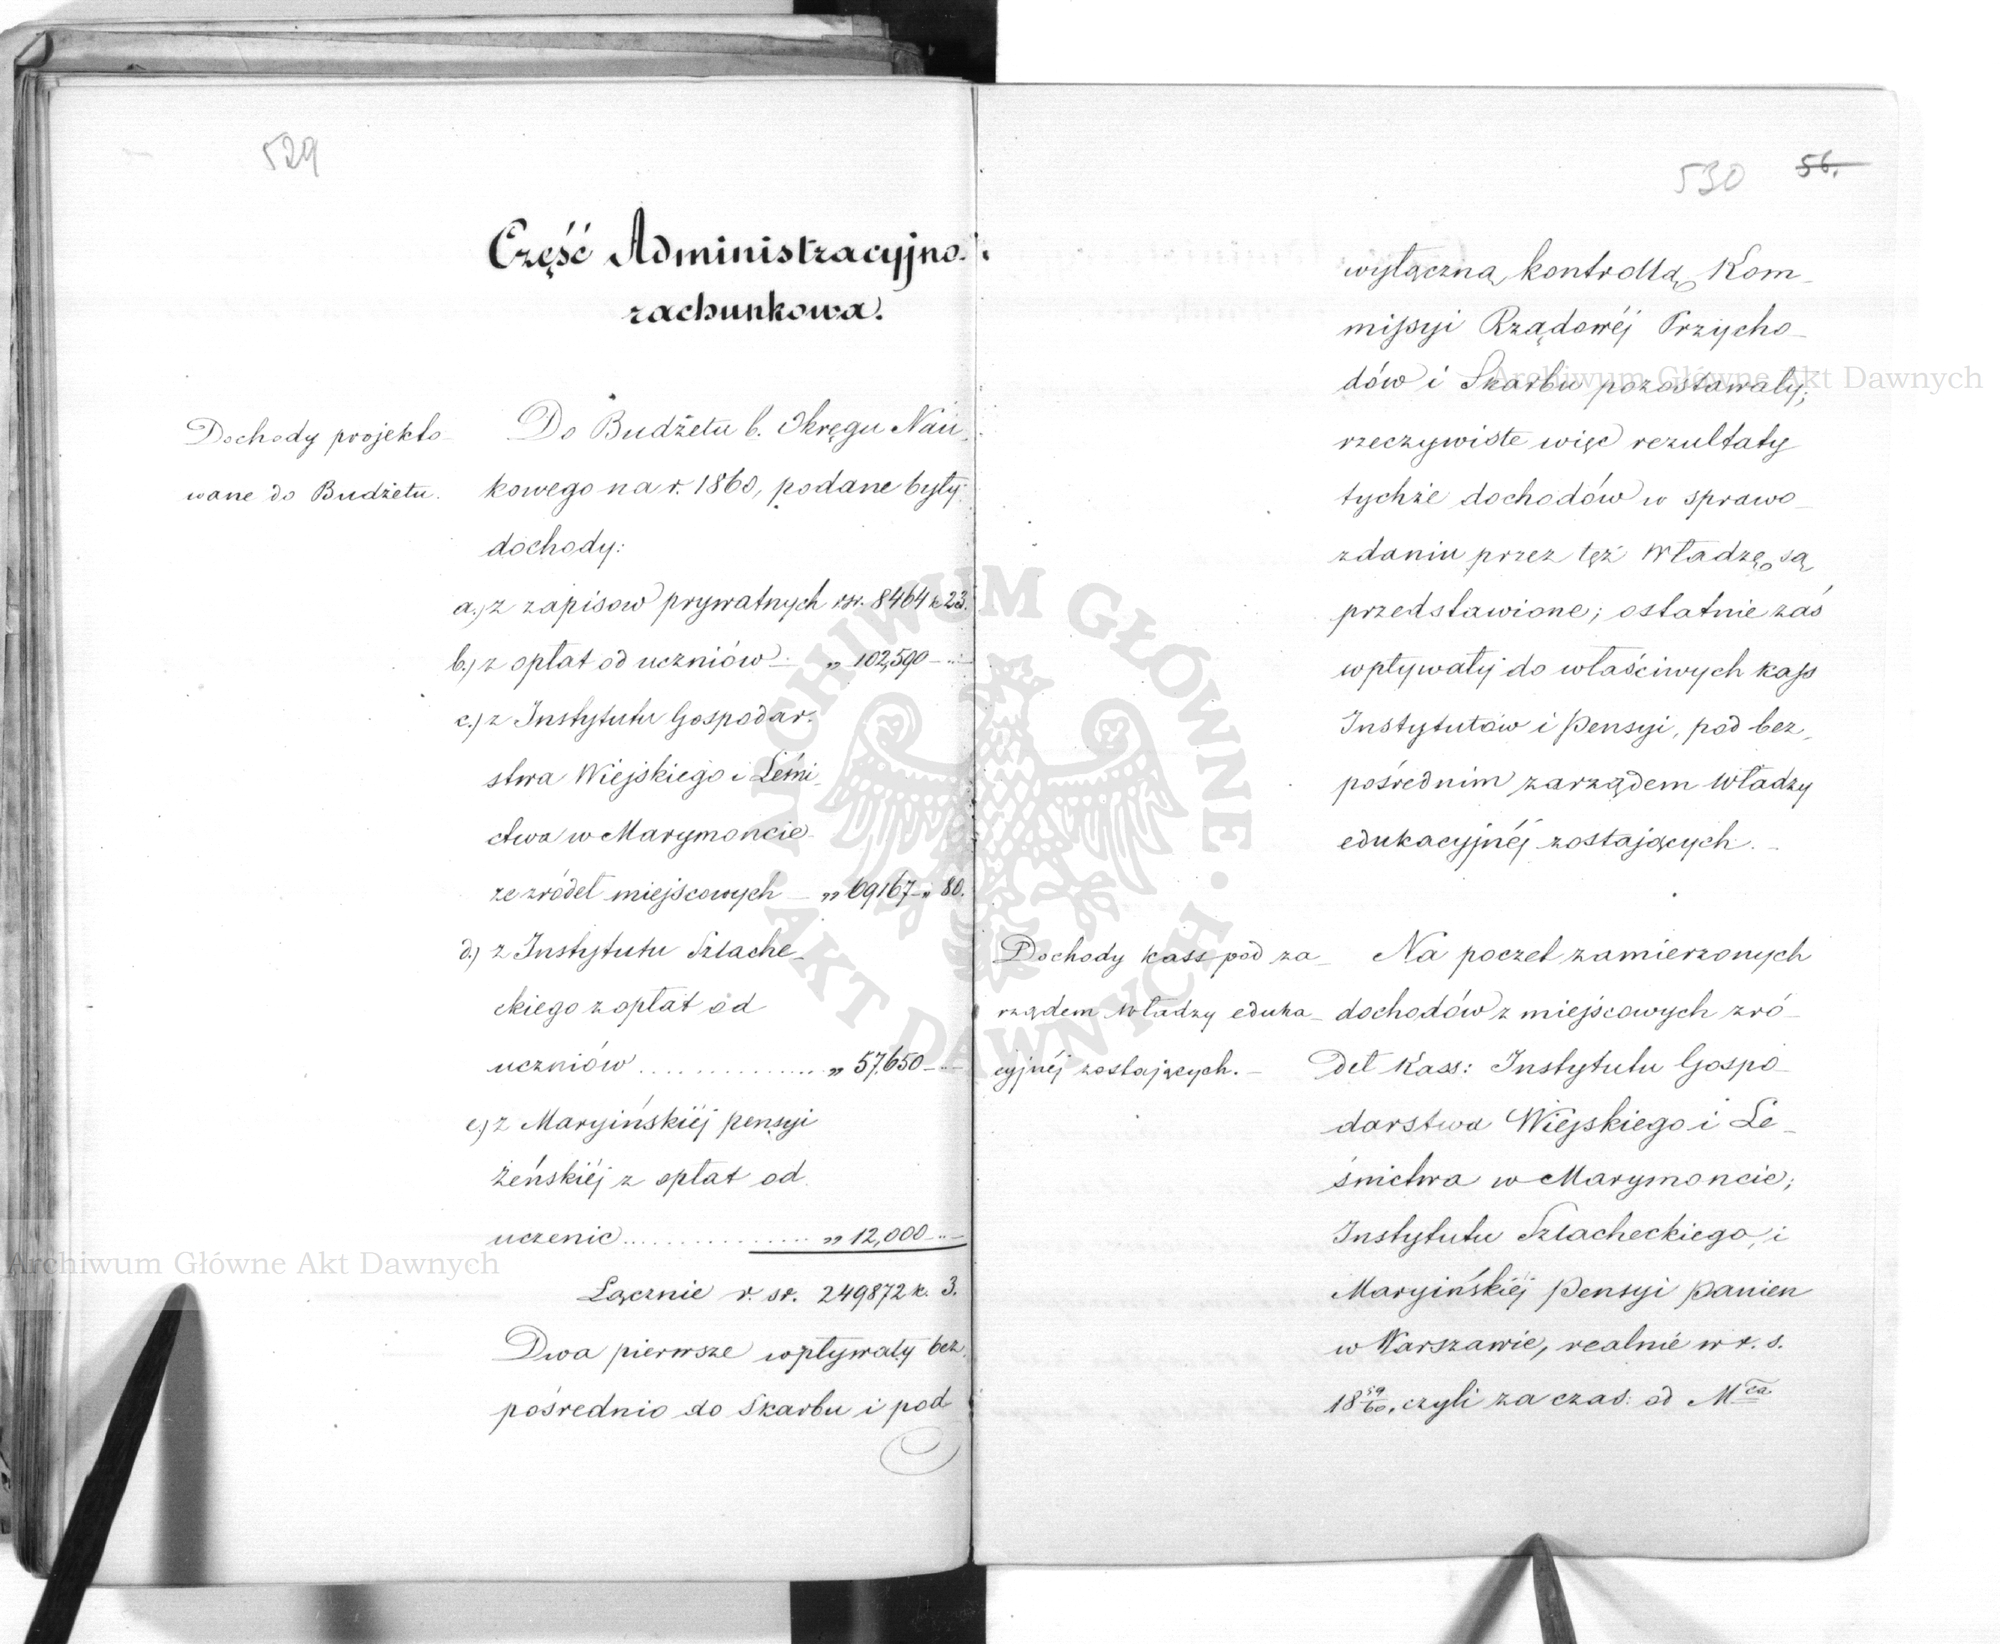 529
Część Administracyjno-
rachunkowa.
Dochody projekto-
wane do Budżetu.
Do Budżetu b. Okręgu Nau-
kowego na r. 1860, podane były
dochody:
a.) z zapisow prywatnych rsr. 8464 k 23.
b.) z opłat od uczniów " 102,590 - "
c.) z Instytutu Gospodar-
stwa Wiejskiego i Leśni-
ctwa w Marymoncie
ze zródeł miejscowych - " 69167 - " 80.
d.) z Instytutu Szlache-
ckiego z opłat od
uczniów .............. " 57,650 - "
e.) z Maryińskiéj pensyi
żeńskiéj z opłat od
uczenic .............. " 12,000 - "
Łącznie r. sr. 249872 k. 3.
Dwa pierwsze wpływały bez-
pośrednio do Skarbu i pod
530 56.
wyłączną kontrollą Kom-
missyi Rządowéj Przycho-
dów i Skarbu pozostawały;
rzeczywiste więc rezultaty
tychże dochodów w sprawo-
zdaniu przez tęż Władzę są
przedstawione; ostatnie zaś
wpływały do właściwych kass
Instytutów i Pensyi, pod bez-
pośrednim zarządem Władzy
edukacyjnéj zostających. -
Dochody kass pod za-
rządem Władzy eduka-
cyjnéj zostających. -
Na poczet zamierzonych
dochodów z miejscowych zró-
deł Kass: Instytutu Gospo-
darstwa Wiejskiego i Le-
śnictwa w Marymoncie;
Instytutu Szlacheckiego, i
Maryińskiéj Pensyi Panien
w Warszawie, realnie w r. s.
18 59/60, czyli za czas: od M ca
Archiwum Główne Akt Dawnych
Archiwum Główne Akt Dawnych
ARCHIWUM GŁÓWNE AKT DAWNYCH